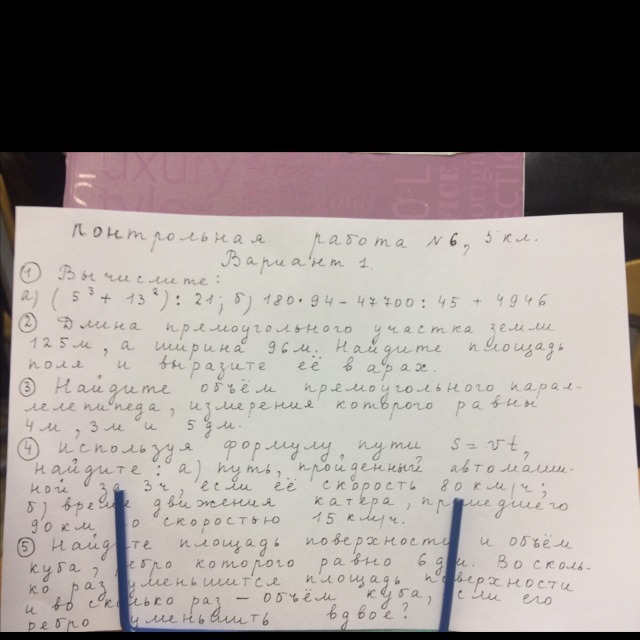 luxury
Контрольная работа №6, 5 кл.
Вариант 1.
① Вычислите:
а) (5³ + 13²) : 21; б) 180·94 – 47700 : 45 + 4946
② Длина прямоугольного участка земли
125 м, а ширина 96 м. Найдите площадь
поля и выразите её в арах.
③ Найдите объём прямоугольного парал-
лелепипеда, измерения которого равны
4 м, 3 м и 5 дм.
④ Используя формулу пути s = vt,
найдите: а) путь, пройденный автомаши-
ной за 3ч, если её скорость 80 км/ч;
б) время движения катера, прошедшего
90 км со скоростью 15 км/ч.
⑤ Найдите площадь поверхности и объём
куба, ребро которого равно 6 дм. Во сколь-
ко раз уменьшится площадь поверхности
и во сколько раз – объём куба, если его
ребро уменьшить вдвое?